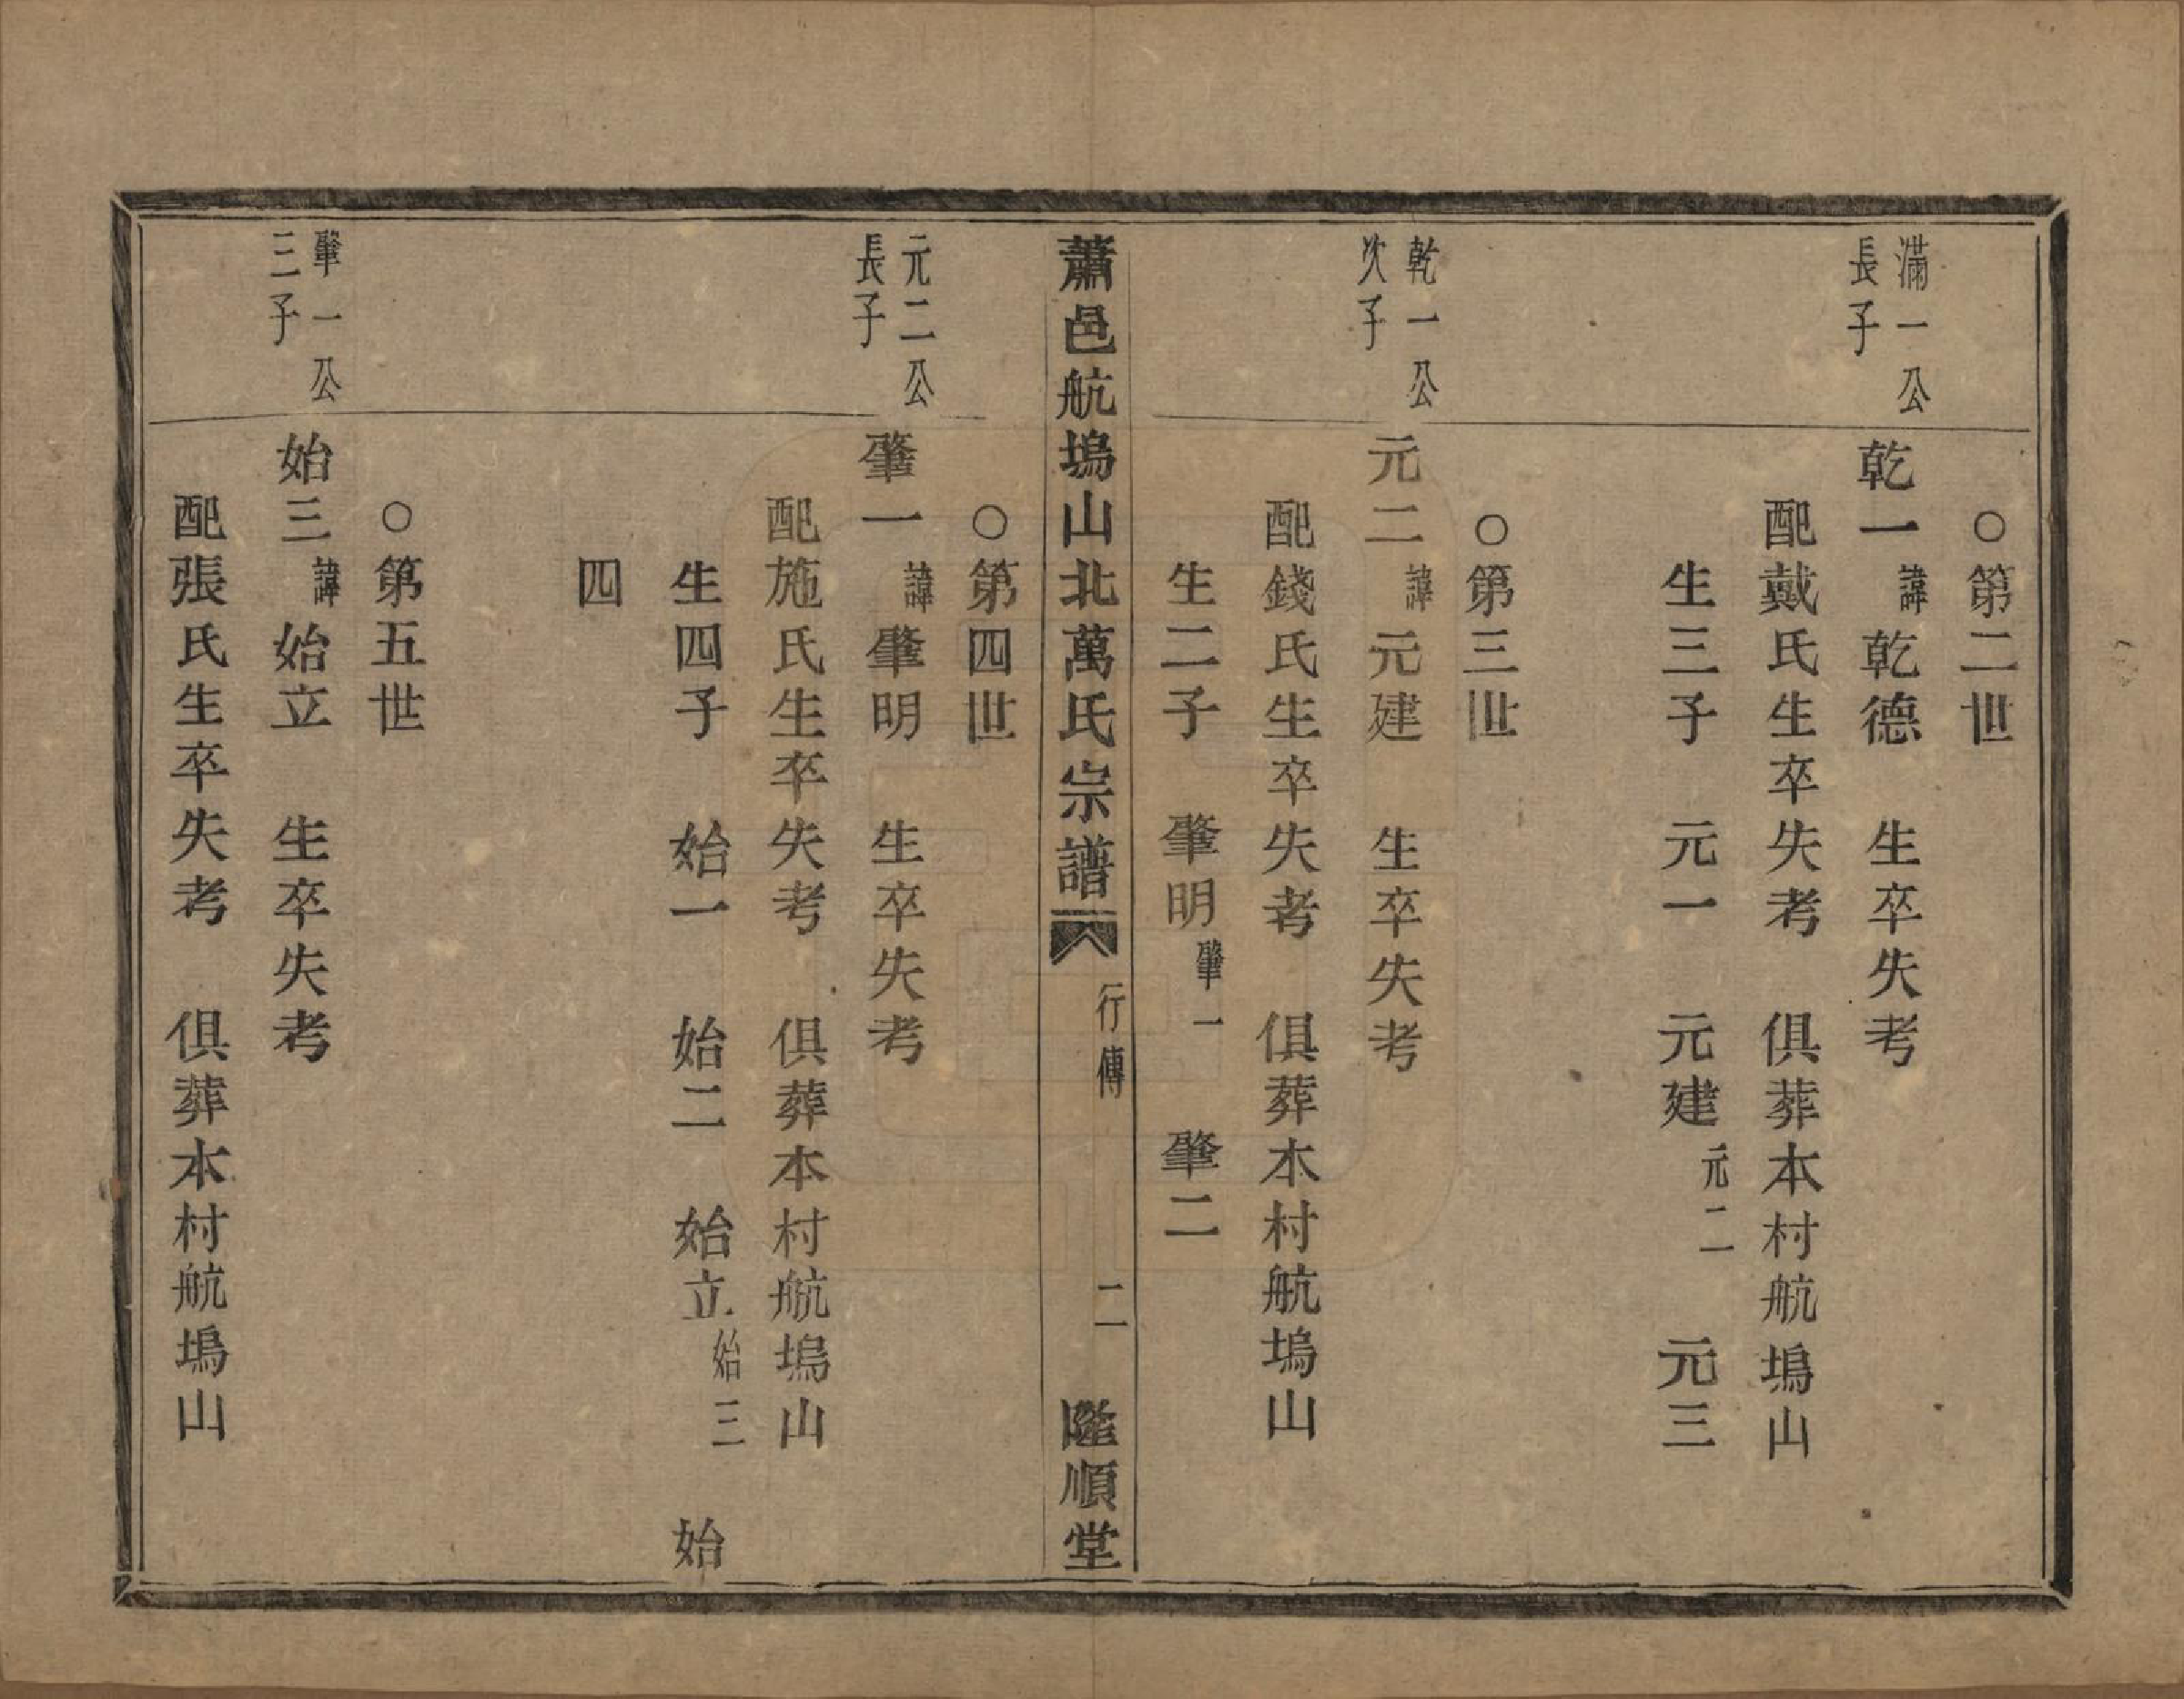 ○第二世
滿一公
長子
乾一諱乾德　生卒失考
配戴氏生卒失考　俱葬本村航塢山
生三子　元一　元建元二　元三
○第三世
乾一公
次子
元二諱元建　生卒失考
配錢氏生卒失考　俱葬本村航塢山
生二子　肇明肇一　肇二
蕭邑航塢山北萬氏宗譜　行傳　二　陞順堂
○第四世
元二公
長子
肇一諱肇明　生卒失考
配施氏生卒失考　俱葬本村航塢山
生四子　始一　始二　始立始三　始
四
○第五世
肇一公
三子
始三諱始立　生卒失考
配張氏生卒失考　俱葬本村航塢山